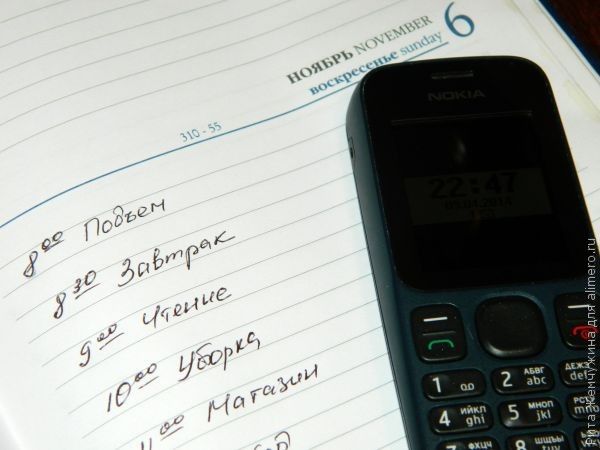 НОЯБРЬ NOVEMBER 6
воскресенье sunday
310 - 55
8 00 Подъем
8 30 Завтрак
9 00 Чтение
10 00 Уборка
11 00 Магазин
NOKIA
22:47
1
2 АБВГ abc
ДЕЖЗ def
4 ИЙКЛ ghi
5 МНОП jkl
7 ФХЦЧ
8 ШЩЪЫ
Ритажемчужина для alimero.ru